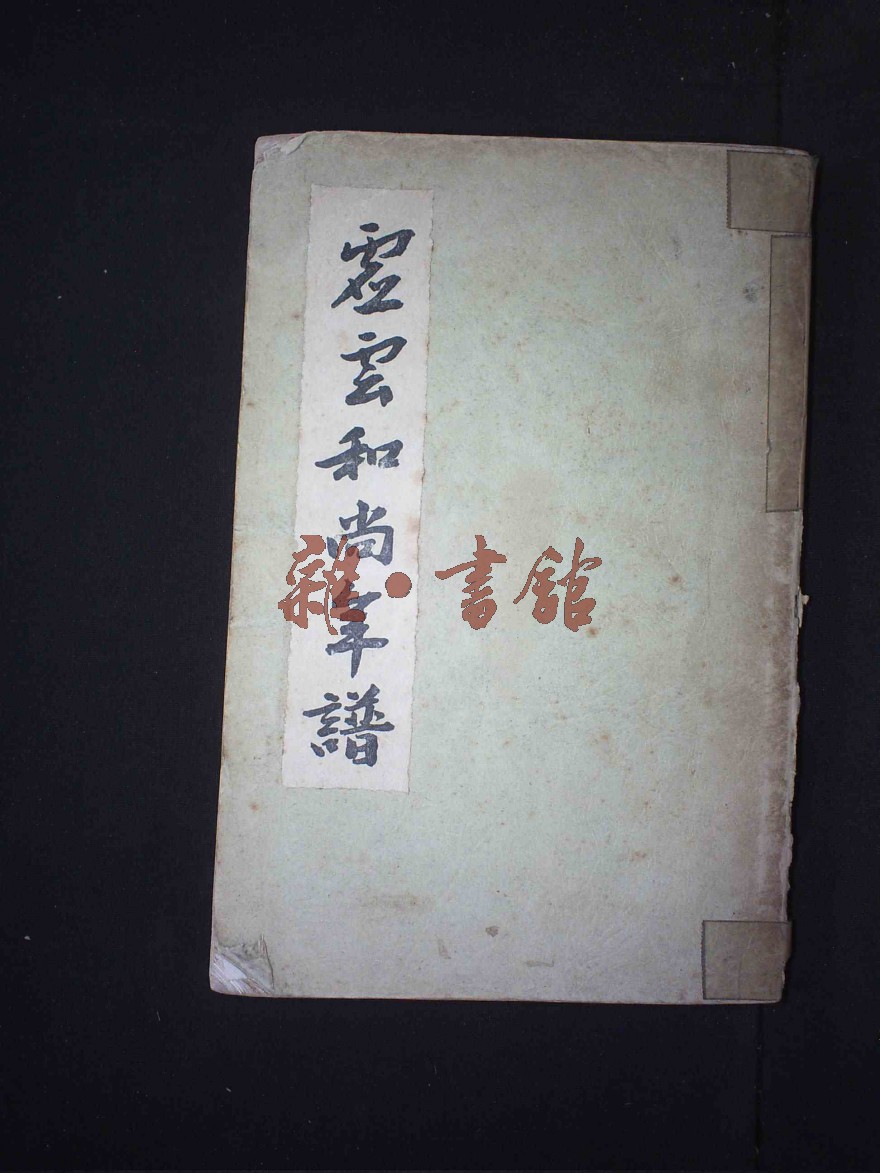 虛雲和尚年譜
雜·書館